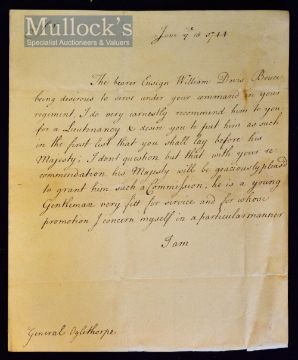 Mullock's
Specialist Auctioneers & Valuers
June ye 16 1744
The bearer Ensign William Drury Bruce
being desirous to serve under your command in your
regiment, I do very earnestly recommend him to you
for a Lieutenancy & desire you to put him as such
in the first list that you shall lay before his
Majesty; I dont question but that with your re=
=commendation his Majesty will be graciously pleasd
to grant him such a Commission, he is a young
Gentleman very fitt for service and for whose
promotion I concern myself in a particular manner
I am
General Oglethorpe